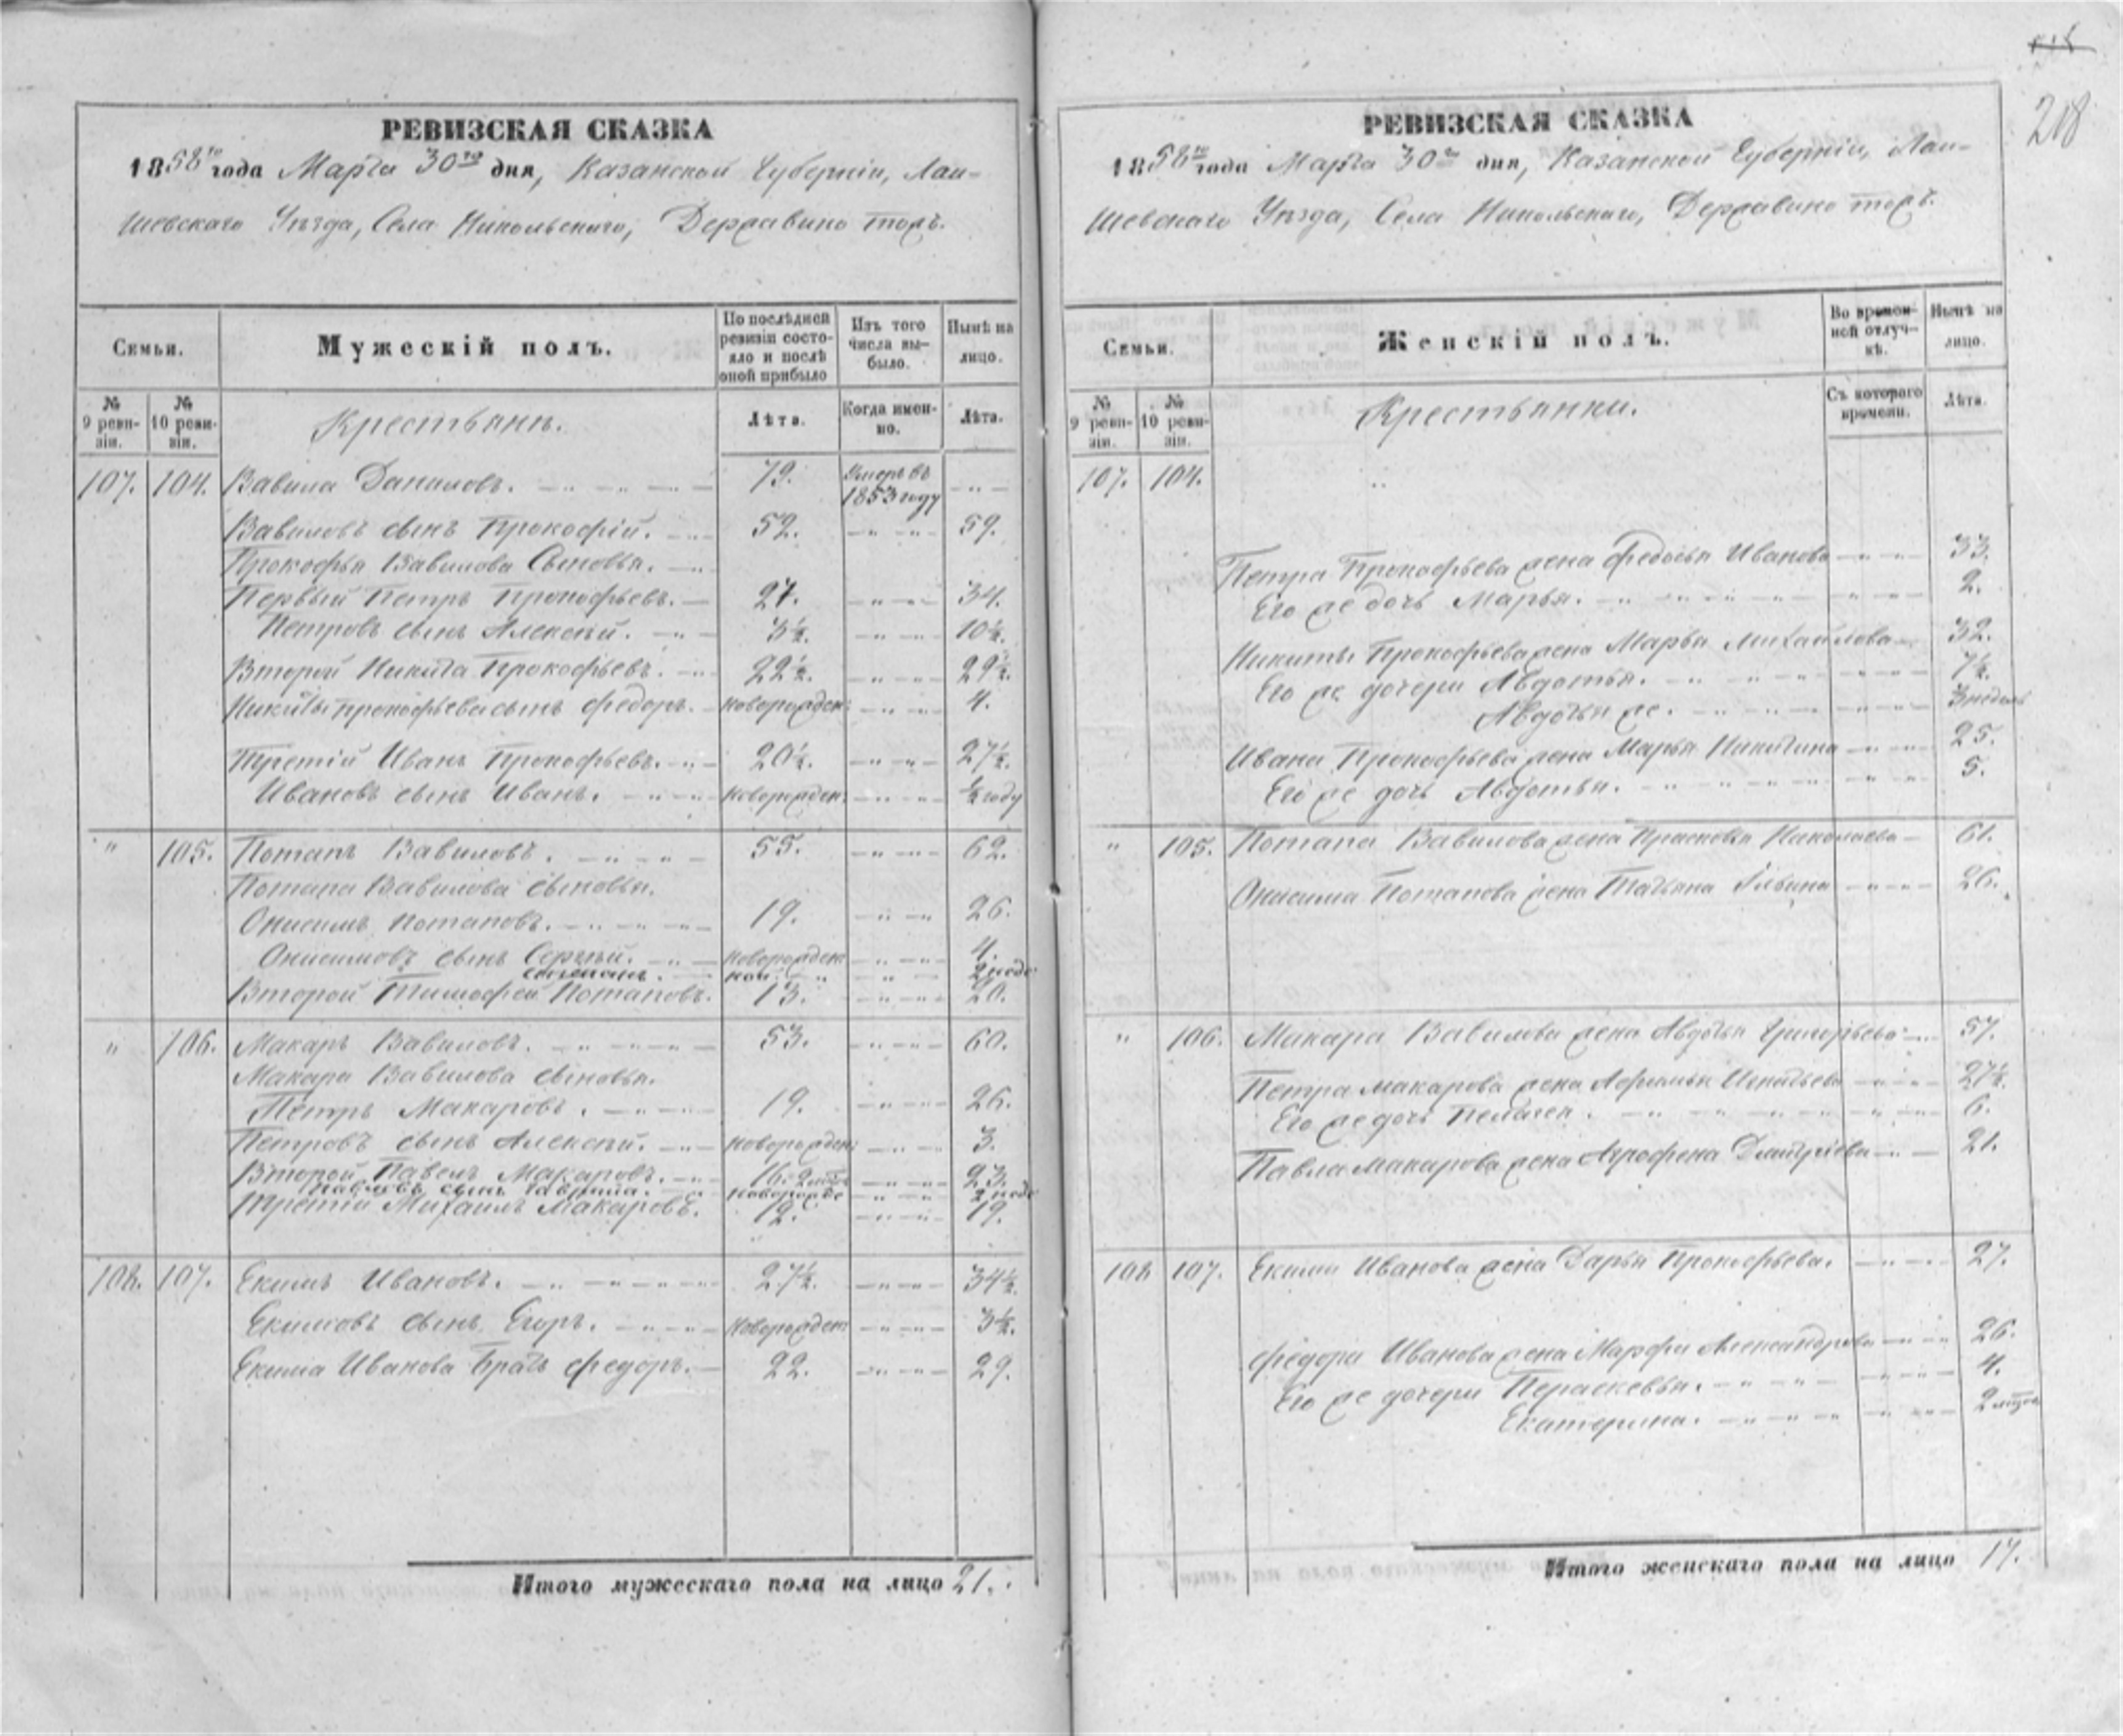 218
РЕВИЗСКАЯ СКАЗКА
1858го года Марта 30го дня, Казанской Губернiи, Лаи-
шевскаго Уѣзда, Села Никольскаго, Державино тожъ.
Семьи.
Мужескiй полъ.
По послѣдней ревизiи состо-яло и послѣ оной прибыло
Изъ того числа вы-было.
Нынѣ на лицо.
№ 9 реви-зiи.
№ 10 реви-зiи.
Крестьяне.
Лѣта.
Когда имен-но.
Лѣта.
107. 104. Вавила Даниловъ. 79. Умеръ въ 1853 году
Вавиловъ сынъ Прокофiй. 52. 59.
Прокофья Вавилова Сыновья.
Первый Петръ Прокофьевъ. 27. 34.
Петровъ сынъ Алексѣй. 3½. 10½.
Второй Никита Прокофьевъ. 22½. 29½.
Никиты Прокофьева сынъ Федоръ. новорожден. 4.
Третiй Иванъ Прокофьевъ. 20½. 27½.
Ивановъ сынъ Иванъ. новорожден. ½ году
" 105. Потапъ Вавиловъ. 55. 62.
Потапа Вавилова сыновья.
Онисимъ Потаповъ. 19. 26.
Онисимовъ сынъ Сергѣй. новорожден 4.
Степанъ. 2 неде
Второй Тимофей Потаповъ. 13. 20.
" 106. Макаръ Вавиловъ. 53. 60.
Макара Вавилова сыновья.
Петръ Макаровъ. 19. 26.
Петровъ сынъ Алексѣй. новорожден 3.
Второй Павелъ Макаровъ. 16. 23.
Павловъ сынъ Гаврила. новорожде 2 неде
Третiй Михаилъ Макаровъ. 12. 19.
108. 107. Екимъ Ивановъ. 27½. 34½.
Екимовъ сынъ Егоръ. новорожден 3½.
Екима Иванова Братъ Федоръ. 22. 29.
Итого мужескаго пола на лицо 21.
РЕВИЗСКАЯ СКАЗКА
1858го года Марта 30го дня, Казанской Губернiи, Лаи-
шевскаго Уѣзда, Села Никольскаго, Державино тожъ.
Семьи.
Женскiй полъ.
Во времен-ной отлуч-кѣ.
Нынѣ на лицо.
№ 9 реви-зiи.
№ 10 реви-зiи.
Крестьянки.
Съ котораго времени.
Лѣта.
107. 104.
Петра Прокофьева жена Федосья Иванова 33.
Его же дочь Марья. 2.
Никиты Прокофьева жена Марья Михайлова 32.
Его же дочери Авдотья. 7½.
Авдотья же. 3 недель
Ивана Прокофьева жена Марья Никитина 25.
Его же дочь Авдотья. 5.
" 105. Потапа Вавилова жена Прасковья Николаева 61.
Онисима Потапова жена Татьяна Ильина 26.
" 106. Макара Вавилова жена Авдотья Григорьева 57.
Петра Макарова жена Афимья Игнатьева 27½.
Его же дочь Пелагея. 6.
Павла Макарова жена Аграфена Дмитрiева 21.
108 107. Екима Иванова жена Дарья Прокофьева. 27.
Федора Иванова жена Марфа Александрова 26.
Его же дочери Параскевья. 4.
Екатерина. 2
Итого женскаго пола на лицо 17.